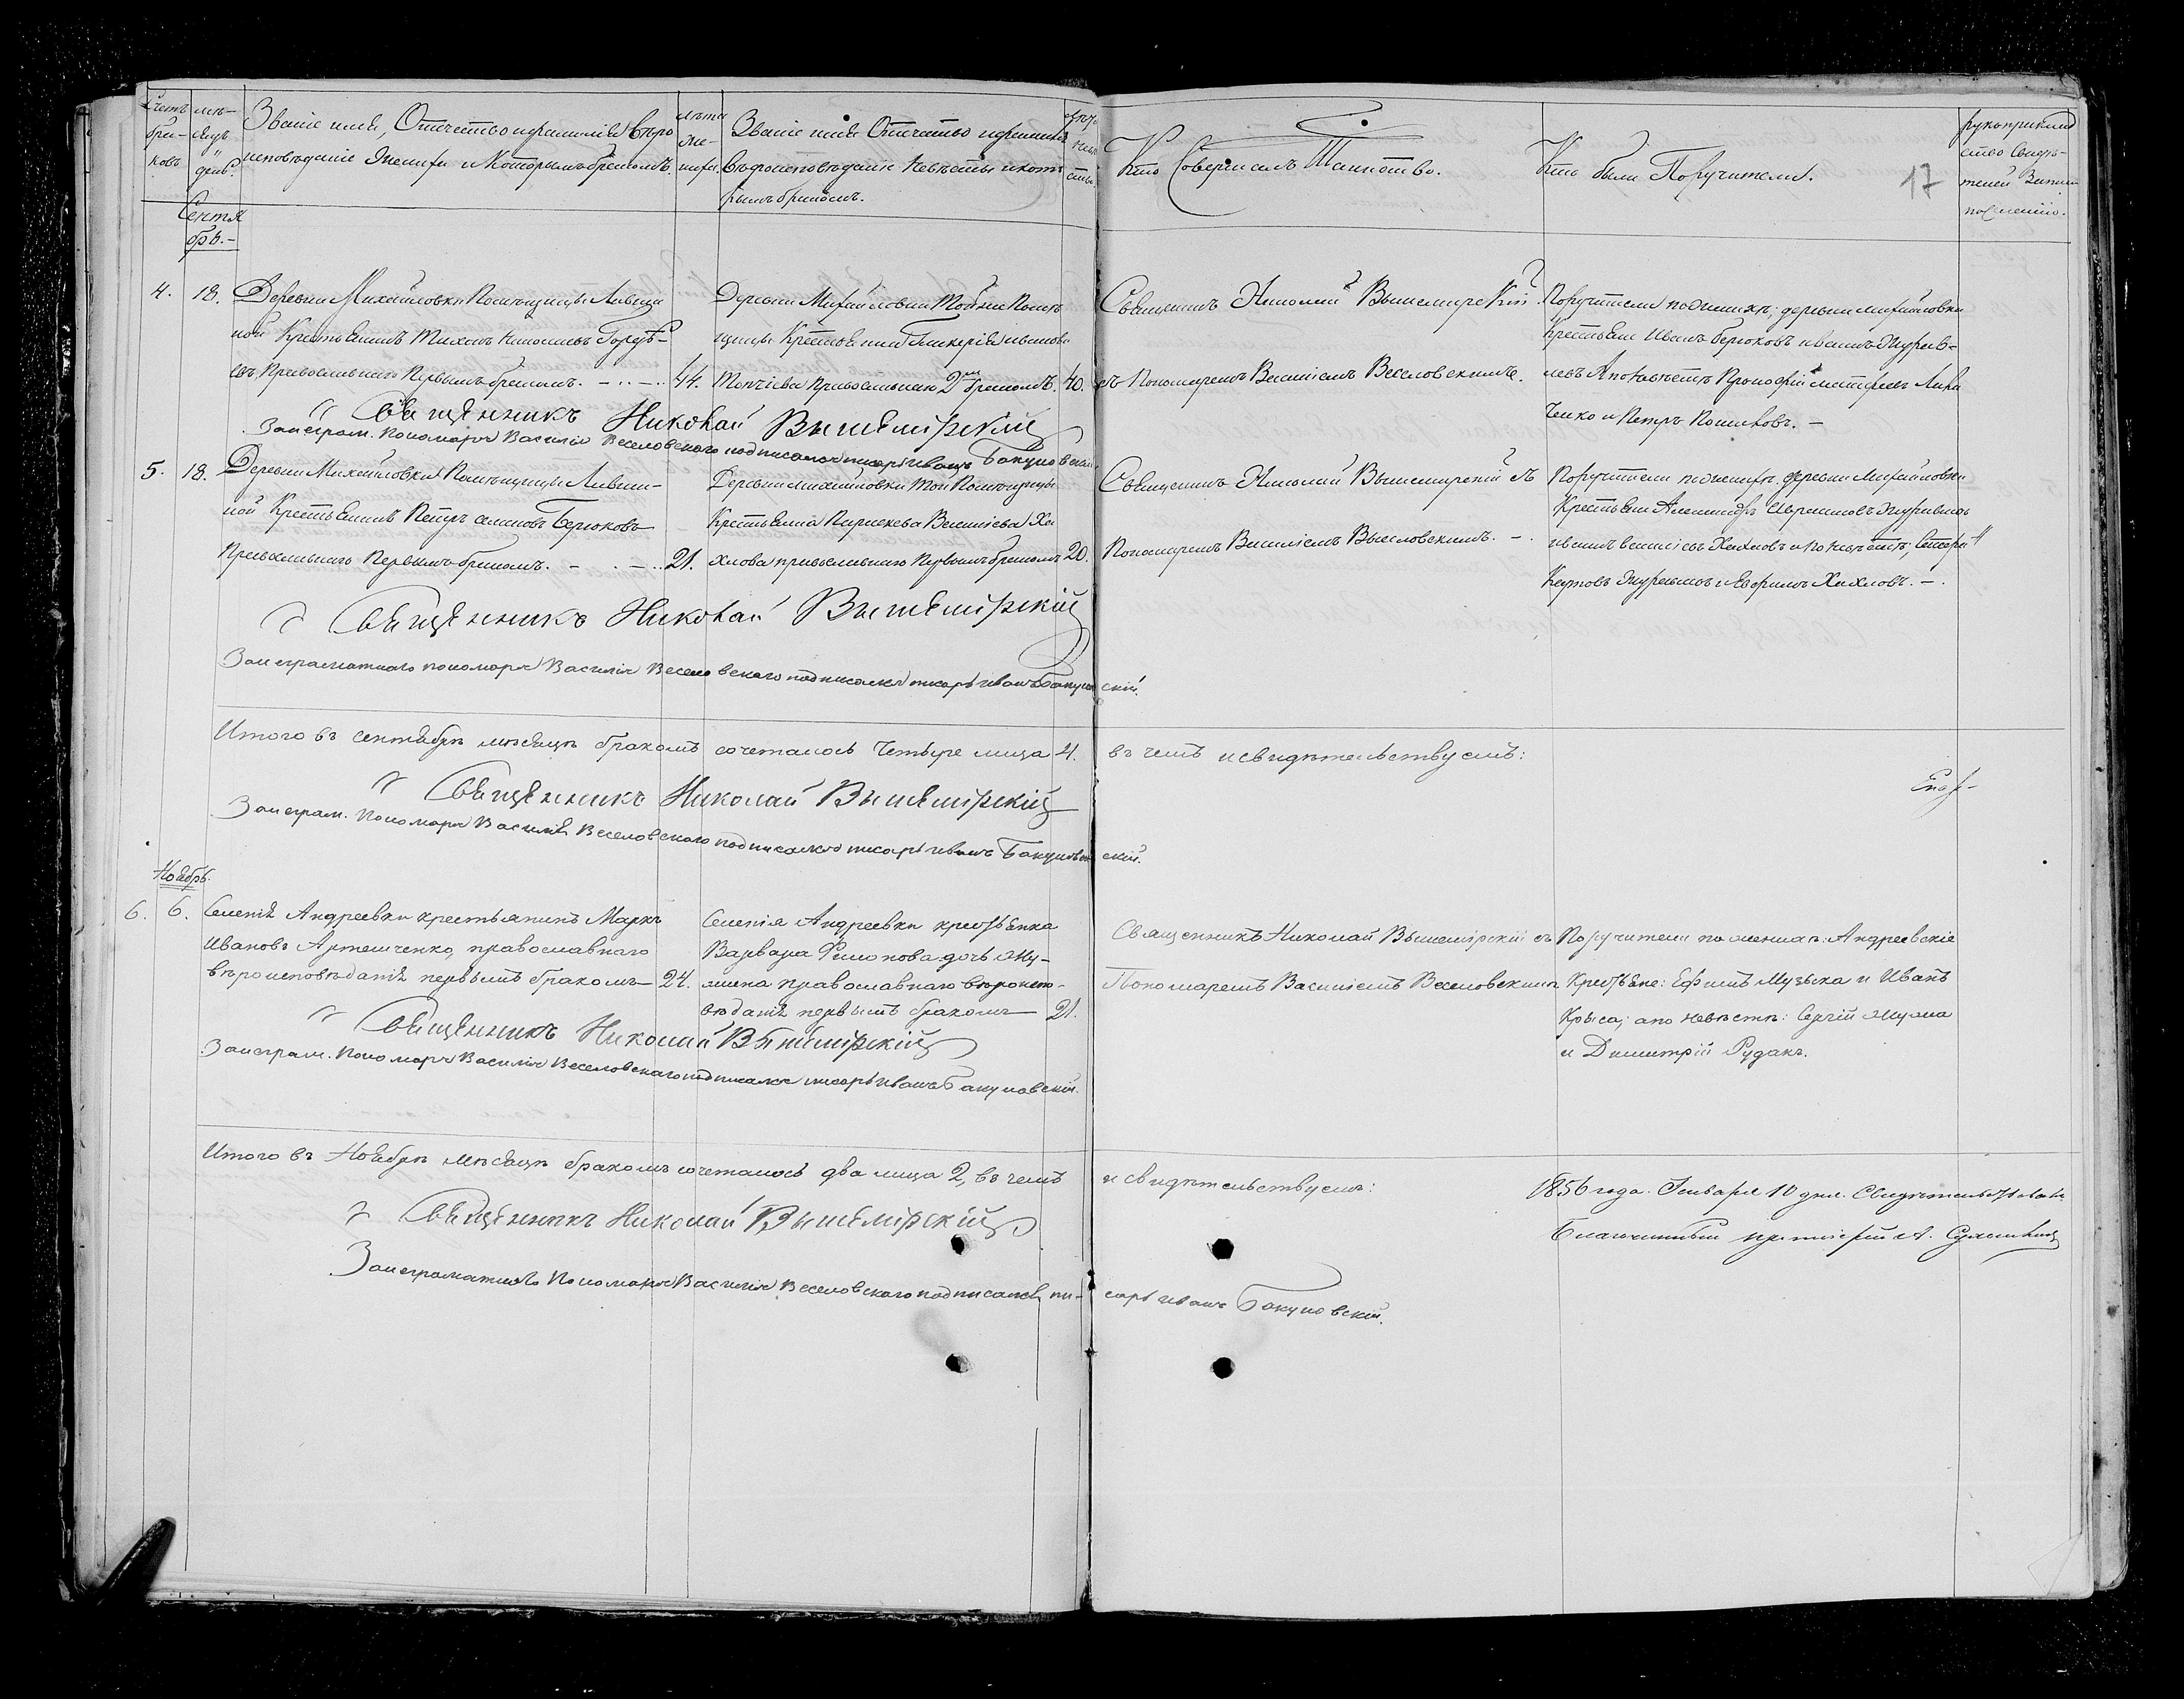 Счетъ бра-ковъ
мѣ-сяцъ и день
Званіе имя, Отчество и фамилія вѣро
исповѣданіе Жениха и Которымъ бракомъ.
лѣта же-ниха.
Званіе имя Отчество и фамилія
вѣроисповѣданіе Невѣсты и кото
рымъ бракомъ.
Кто Совершалъ Таинство.
Кто были Поручители.
17
рукоприклад
ство Свидѣ-
телей Записи
по желанію.
Сентя
брь.-
4. 18. Деревни Михайловки Помѣщицы
ной Крестьянинъ Тихонъ
Православнаго Первымъ бракомъ. 44.
Деревни Михайловки Той же Помѣ
щицы Крестьянка Гликерія Иванова
православная 2мъ бракомъ. 40.
Священникъ Николай Вышемірскій
съ Пономаремъ Василіемъ Веселовскимъ.
Поручители по женихѣ; деревни Михайловки
Крестьяне Иванъ Берюковъ и Иванъ Журав-
левъ А по невѣстѣ Прокофій
ченко и Петръ
Священникъ Николай Вышемірскій
За неграм. Пономаря Василія Веселовскаго подписался писарь Иванъ Бакуновскій
5. 18. Деревни Михайловки Помѣщицы
ной Крестьянинъ Петръ Семеновъ Берюковъ
Православнаго Первымъ бракомъ. 21.
Деревни Михайловки Той Помѣщицы
Крестьянка Параскева Василіева Хо
хлова православнаго Первымъ бракомъ 20.
Священникъ Николай Вышемірскій съ
Пономаремъ Василіемъ Веселовскимъ.
Поручители по женихѣ. деревни Михайловки
Крестьяне Александръ Журавлевъ
Иванъ Василіевъ Хохловъ и по невѣстѣ;
Журавлевъ и Ефримъ Хохловъ.
Священникъ Николай Вышемірскій
За неграматнаго пономаря Василія Веселовскаго подписался писарь Иванъ Бакуновскій.
Итого въ сентябрѣ мѣсяцѣ бракомъ сочеталось Четыре лица 4. въ чемъ и свидѣтельствуемъ:
Священникъ Николай Вышемірскій
За неграм. Пономаря Василія Веселовскаго подписался писарь Иванъ Бакуновскій.
Ноябрь.
6. 6. Селенія Андреевки крестьянинъ Маркъ
Ивановъ Артемченко, православнаго
вѣроисповѣданія первымъ бракомъ 24.
Селенія Андреевки крестьянка
Варвара Филонова дочь Яку-
шина православнаго вѣроиспо-
вѣданія первымъ бракомъ 21.
Священникъ Николай Вышемірскій съ
Пономаремъ Василіемъ Веселовскимъ
Поручители по женихѣ: Андреевскіе
Крестьяне: Ефимъ Музыка и Иванъ
Крыса; а по невѣстѣ: Сергій
и Димитрій Рудакъ.
Священникъ Николай Вышемірскій
За неграм. Пономаря Василія Веселовскаго подписался писарь Иванъ Бакуновскій.
Итого въ Ноябрѣ мѣсяцѣ бракомъ сочеталось два лица 2, въ чемъ и свидѣтельствуемъ:
Священникъ Николай Вышемірскій
За неграматнаго Пономаря Василія Веселовскаго подписался пи-сарь Иванъ Бакуновскій.
1856 года. Января 10 дня. Свидѣтельствовалъ
Благочинный протоіерей А.